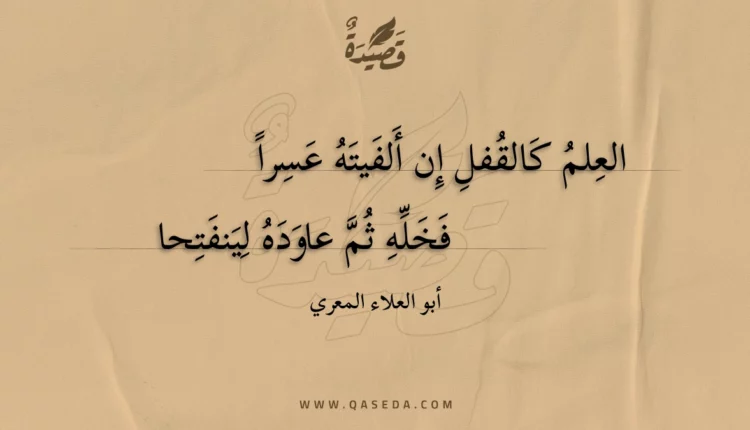 قَصِيْدَةٌ
العِلمُ كَالقُفلِ إِن أَلفَيتَهُ عَسِراً
فَخَلِّهِ ثُمَّ عاوَدَهُ لِيَنفَتِحا
أبو العلاء المعري
WWW.QASEDA.COM